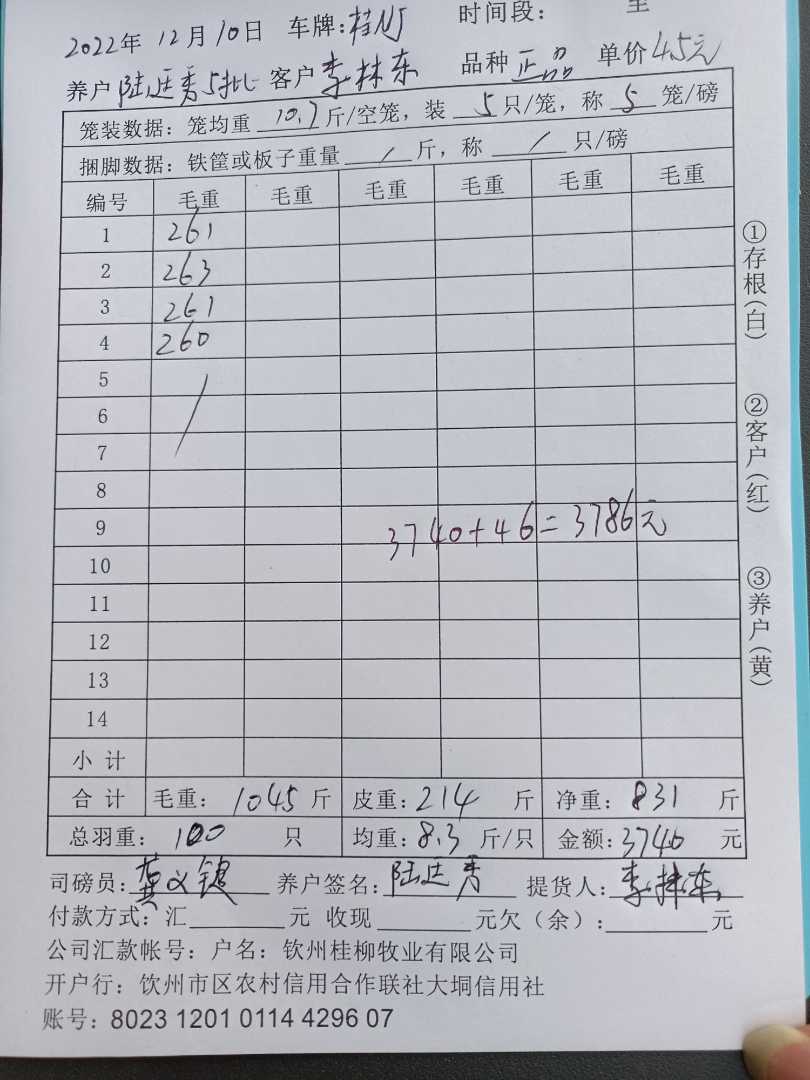 时间段： 至
2022年 12月10日 车牌：桂NJ
养户 陆廷秀5批 客户 李林东 品种 正品 单价 4.5元
笼装数据：笼均重 10.7 斤/空笼，装 5 只/笼，称 5 笼/磅
捆脚数据：铁筐或板子重量 / 斤，称 / 只/磅
编号 毛重 毛重 毛重 毛重 毛重 毛重
1 261
2 263
3 261
4 260
5 /
6
7
8
9 3740+46=3786元
10
11
12
13
14
小计
合计 毛重：1045 斤 皮重：214 斤 净重：831 斤
总羽重：100 只 均重：8.3 斤/只 金额：3740 元
司磅员： 养户签名：陆廷秀 提货人：李林东
付款方式：汇 元 收现 元欠（余）： 元
公司汇款帐号：户名：钦州桂柳牧业有限公司
开户行：饮州市区农村信用合作联社大垌信用社
账号：8023 1201 0114 4296 07
①存根(白)
②客户(红)
③养户(黄)